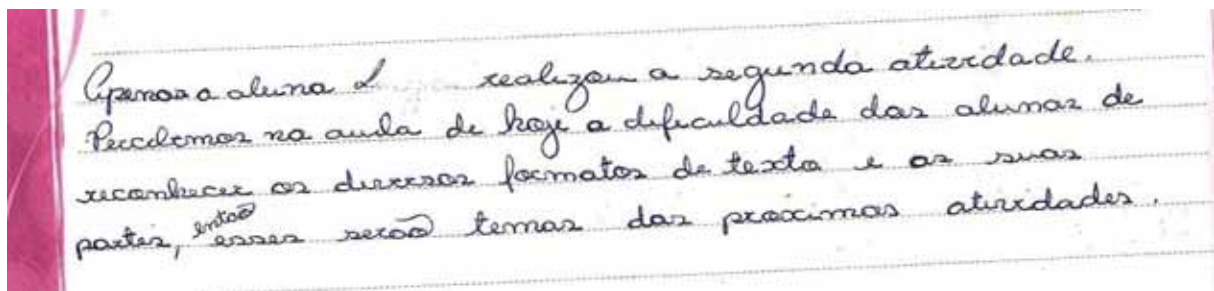 Apenas a aluna L realizou a segunda atividade.
Percebemos na aula de hoje a dificuldade das alunas de
reconhecer os diversos formatos de texto e as suas
partes, então esses serão temas das próximas atividades.